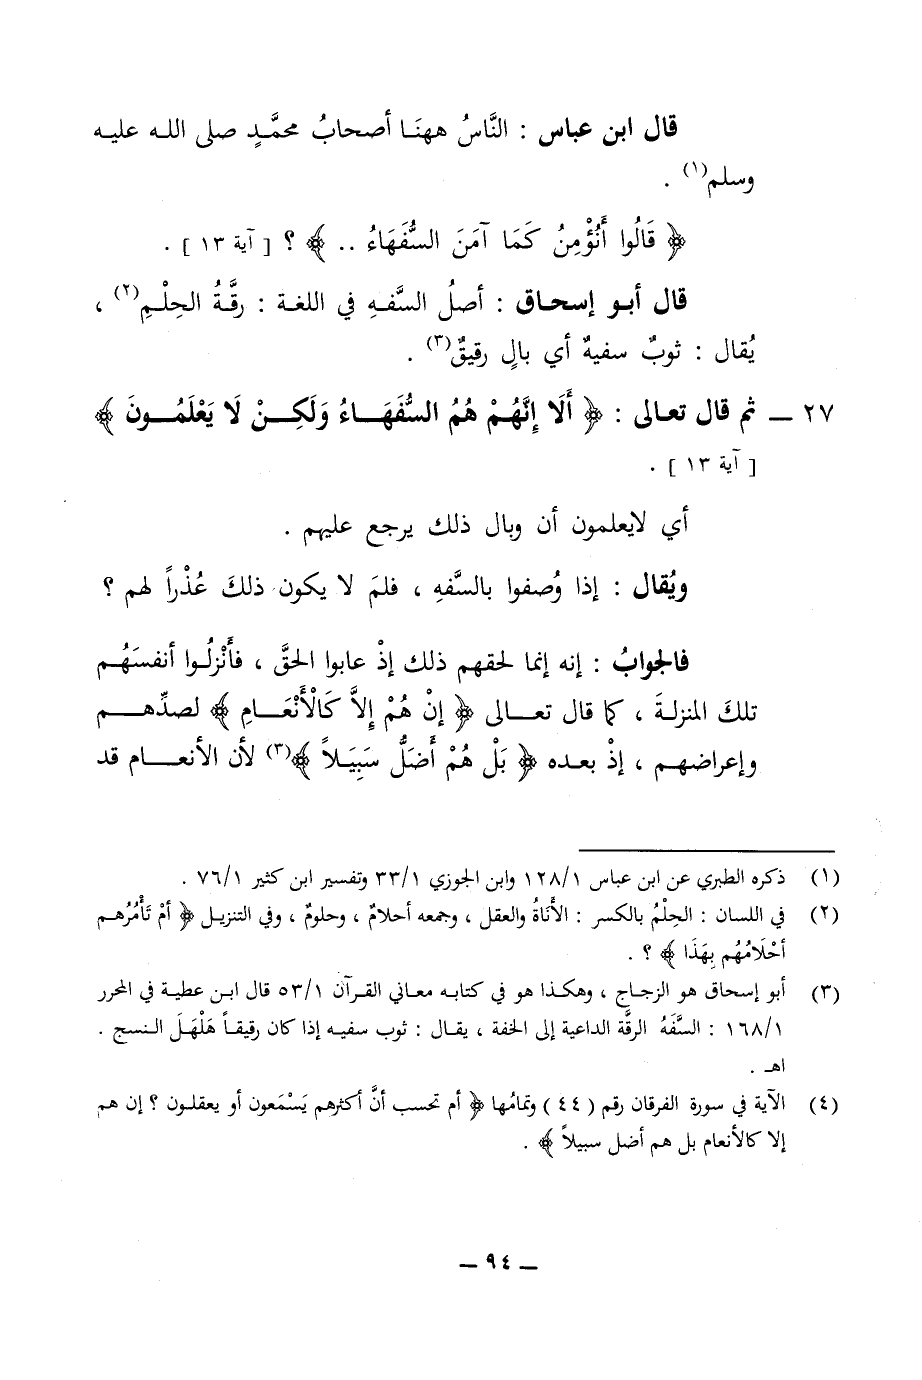 قال ابن عباس : النَّاسُ ههنَا أصحابُ محمَّدٍ صلى الله عليه
وسلم(١) .
﴿ قَالُوا أَنُؤْمِنُ كَمَا آمَنَ السُّفَهَاءُ .. ﴾ ؟ [ آية ١٣ ] .
قال أبو إسحاق : أصلُ السَّفهِ في اللغة : رقَّةُ الحِلْمِ(٢) ،
يُقال : ثوبٌ سفيهٌ أي بالٍ رقيقٌ(٣) .
٢٧ ـ ثم قال تعالى : ﴿ أَلَا إِنَّهُمْ هُمُ السُّفَهَاءُ وَلَكِنْ لَا يَعْلَمُونَ ﴾
[ آية ١٣ ] .
أي لايعلمون أن وبال ذلك يرجع عليهم .
ويُقال : إذا وُصفوا بالسَّفهِ ، فلمَ لا يكون ذلكَ عُذْراً لهم ؟
فالجوابُ : إنه إنما لحقهم ذلك إذْ عابوا الحقَّ ، فأَنْزلُوا أنفسَهُم
تلكَ المنزلةَ ، كما قال تعالى ﴿ إِنْ هُمْ إِلاَّ كَالْأَنْعَامِ ﴾ لصدِّهم
وإعراضهم ، إذْ بعده ﴿ بَلْ هُمْ أَضَلُّ سَبِيَلاً ﴾(٣) لأن الأنعام قد
(١) ذكره الطبري عن ابن عباس ١٢٨/١ وابن الجوزي ٣٣/١ وتفسير ابن كثير ٧٦/١ .
(٢) في اللسان : الحِلْمُ بالكسر : الأَنَاةُ والعقل ، وجمعه أحلامٌ ، وحلومٌ ، وفي التنزيل ﴿ أمْ تَأْمُرُهم
أحْلَامُهُم بِهَذَا ﴾ ؟ .
(٣) أبو إسحاق هو الزجاج ، وهكذا هو في كتابه معاني القرآن ٥٣/١ قال ابن عطية في المحرر
١٦٨/١ : السَّفَهُ الرقَّة الداعية إلى الخفة ، يقال : ثوب سفيه إذا كان رقيقاً هَلْهَلَ النسج .
اهـ .
(٤) الآية في سورة الفرقان رقم ( ٤٤ ) وتمامُها ﴿ أم تحسب أنَّ أكثرهم يَسْمَعون أو يعقلون ؟ إن هم
إلا كالأنعام بل هم أضل سبيلاً ﴾ .
ـ ٩٤ ـ